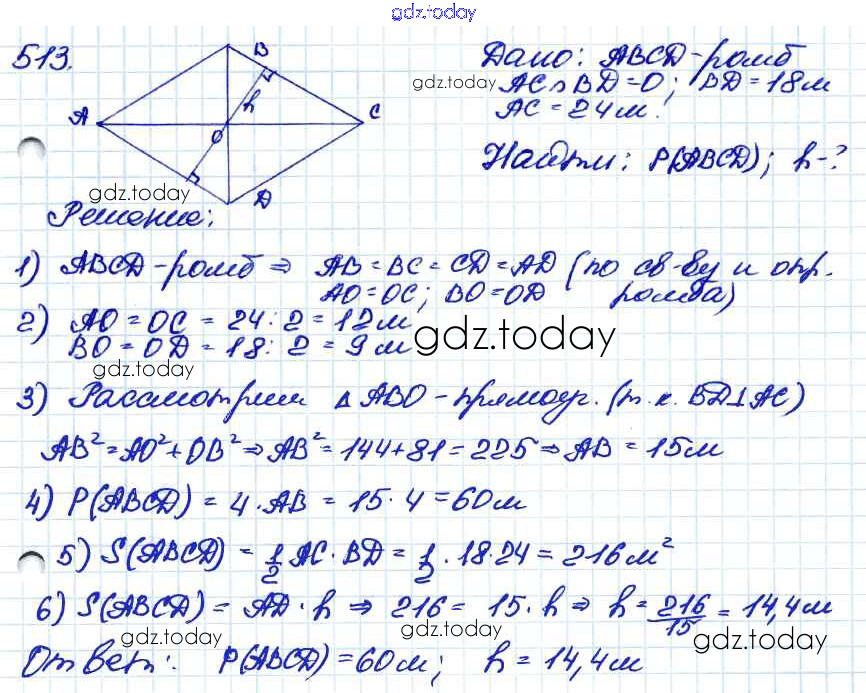 gdz.today
513.
B
A
C
O
h
D
Дано: ABCD-ромб
gdz.today
AC∩BD=O; BD=18м
AC=24м.
Найти: P(ABCD); h-?
gdz.today
Решение:
1) ABCD-ромб ⇒ AB=BC=CD=AD (по св-ву и опр.
AO=OC; BO=OD ромба)
2) AO=OC=24:2=12м
BO=OD=18:2=9м
gdz.today
gdz.today
3) Рассмотрим ΔABO-прямоуг. (т.к. BD⊥AC)
AB²=AO²+OB²⇒AB²=144+81=225⇒AB=15м
4) P(ABCD)=4·AB=15·4=60м
5) S(ABCD)=1/2 AC·BD=1/2·18·24=216м²
6) S(ABCD)=AD·h ⇒ 216=15·h ⇒ h=216/15=14,4м
gdz.today
gdz.today
gdz.today
Ответ: P(ABCD)=60м; h=14,4м